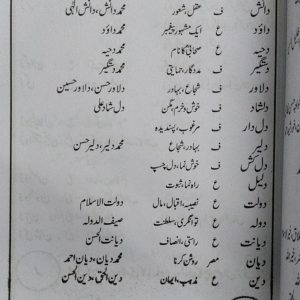 دانش ف عقل، شعور محمد دانش، دانش الٰہی
داؤد ع ایک مشہور پیغمبر محمد داؤد
دحیہ ع صحابیؓ کا نام محمد دحیہ
دستگیر ف مددگار، حمایتی محمد دستگیر
دلاور ف شجاع، بہادر دلاور حسن، دلاور حسین
دلشاد ف خوش و خرم، مگن دل شاد علی
دل دار ف مرغوب، پسندیدہ
دلیر ف بہادر، شجاع محمد دلیر، دلیر حسن
دل کش ف خوش نما، دل چسپ
دلیل ع راہ نما، ثبوت
دولت ع نصیبہ، اقبال، مال دولت الاسلام
دولہ ع تونگری، سلطنت صیف الدولہ
دیانت ع راستی، انصاف دیانت الحسن
دیان مصر روشن کرنا محمد دیان، دیان احمد
دین ع مذہب، ایمان دین الحق، دین الحسن